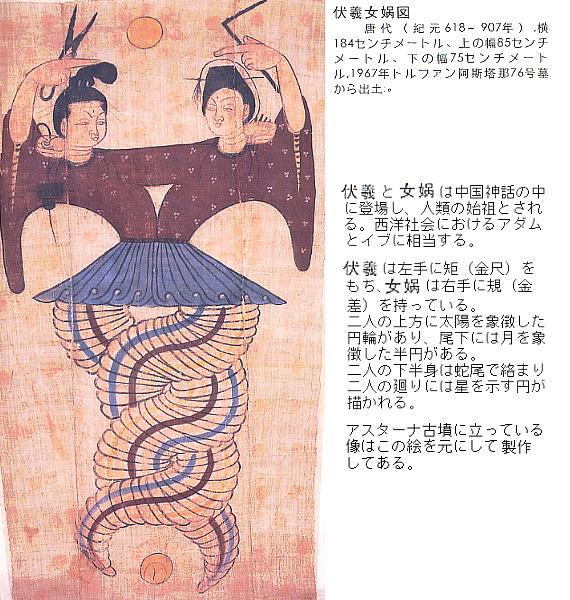 伏羲女娲図
唐代(紀元618-907年),横
184センチメートル、上の幅85センチ
メートル、下の幅75センチメート
ル.1967年トルファン阿斯塔那76号墓
から出土。
伏羲と女娲は中国神話の中
に登場し、人類の始祖とされ
る。西洋社会におけるアダム
とイブに相当する。
伏羲は左手に矩(金尺)を
もち、女娲は右手に規(金
差)を持っている。
二人の上方に太陽を象徴した
円輪があり、尾下には月を象
徴した半円がある。
二人の下半身は蛇尾で絡まり
二人の廻りには星を示す円が
描かれる。
アスターナ古墳に立っている
像はこの絵を元にして製作
してある。